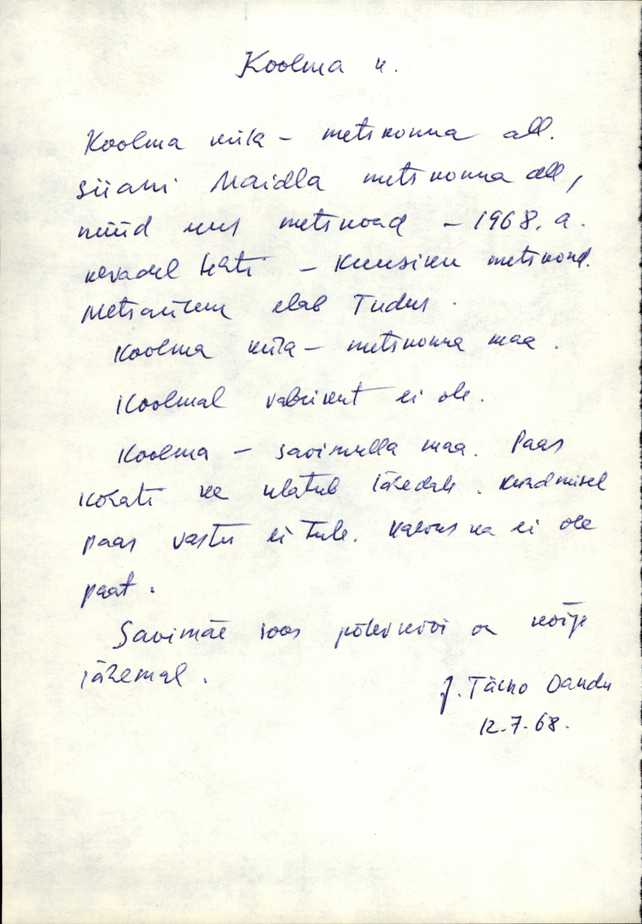 Koolma k.
Koolma küla - metskonna all.
Siiani Maidla metskonna all,
nüüd uus metskond - 1968. a.
kevadel tehti - Kuusiku metskond.
Metsaülem elab Tudus.
Koolma küla - metskonna maa.
Koolmal vabrikut ei ole.
Koolma - savimulla maa. Paas
kohati ka ulatub lähedale. Kündmisel
paas vastu ei tule. Kaevus ka ei ole
paat.
Savimäe soos põlevkivi on kõige
lähemal.
J. Täcko Oandu
12.7.68.